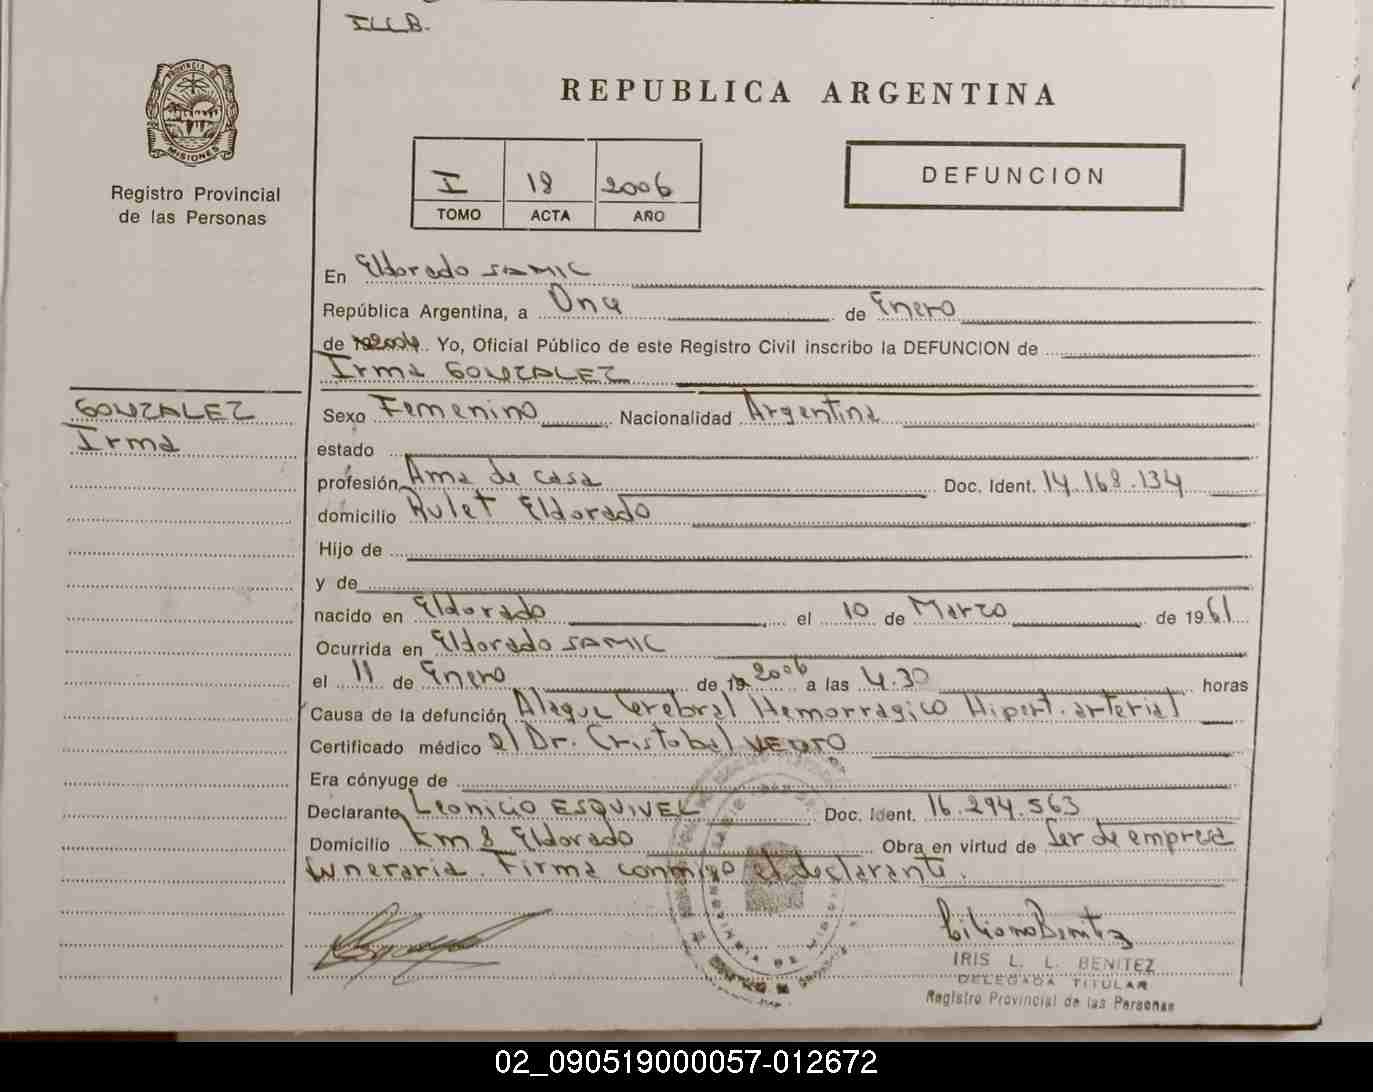 ILLB.
PROVINCIA DE
MISIONES
Registro Provincial
de las Personas
REPUBLICA ARGENTINA
I 18 2006
TOMO ACTA AÑO
DEFUNCION
En Eldorado SAMIC
República Argentina, a Once de Enero
de 2006 Yo, Oficial Público de este Registro Civil inscribo la DEFUNCION de
Irma GONZALEZ
GONZALEZ
Irma
Sexo Femenino Nacionalidad Argentina
estado
profesión Ama de casa Doc. Ident. 14.168.134
domicilio Rulet Eldorado
Hijo de
y de
nacido en Eldorado el 10 de Marzo de 1961
Ocurrida en Eldorado SAMIC
el 11 de Enero de 19 2006 a las 4.30 horas
Causa de la defunción Ataque Cerebral Hemorragico Hipert. arterial
Certificado médico el Dr. Cristobal
Era cónyuge de
Declarante Leonicio ESQUIVEL Doc. Ident. 16.294.563
Domicilio Km 8 Eldorado Obra en virtud de Ser de empresa
funeraria. Firma conmigo el declarante.
IRIS L. L. BENITEZ
DELEGADA TITULAR
Registro Provincial de las Personas
02_090519000057-012672